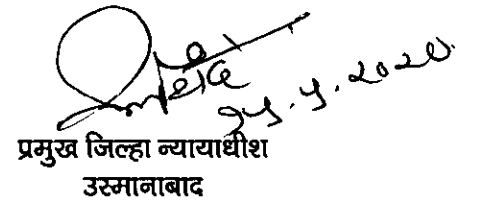 २५.५.२०२०
प्रमुख जिल्हा न्यायाधीश
उस्मानाबाद